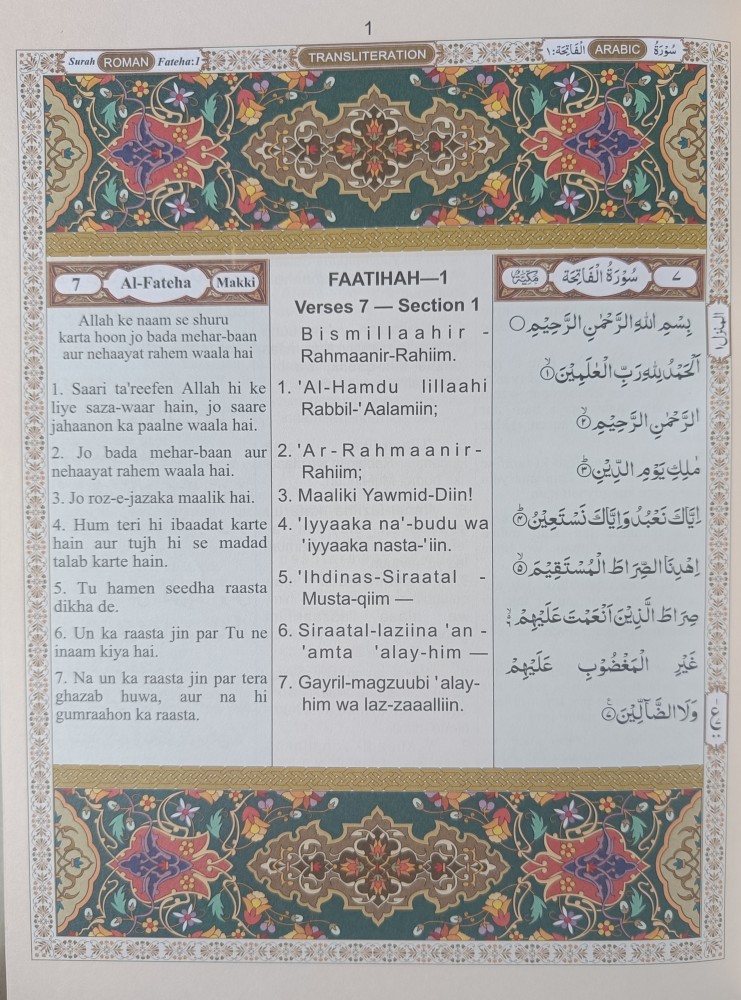 1
Surah ROMAN Fateha:1
TRANSLITERATION
سُوْرَةُ ARABIC الْفَاتِحَة:١
7 Al-Fateha Makki
Allah ke naam se shuru
karta hoon jo bada mehar-baan
aur nehaayat rahem waala hai
1. Saari ta'reefen Allah hi ke
liye saza-waar hain, jo saare
jahaanon ka paalne waala hai.
2. Jo bada mehar-baan aur
nehaayat rahem waala hai.
3. Jo roz-e-jazaka maalik hai.
4. Hum teri hi ibaadat karte
hain aur tujh hi se madad
talab karte hain.
5. Tu hamen seedha raasta
dikha de.
6. Un ka raasta jin par Tu ne
inaam kiya hai.
7. Na un ka raasta jin par tera
ghazab huwa, aur na hi
gumraahon ka raasta.
FAATIHAH—1
Verses 7 — Section 1
Bismillaahir -
Rahmaanir-Rahiim.
1. 'Al-Hamdu lillaahi
Rabbil-'Aalamiin;
2. 'Ar-Rahmaanir-
Rahiim;
3. Maaliki Yawmid-Diin!
4. 'Iyyaaka na'-budu wa
'iyyaaka nasta-'iin.
5. 'Ihdinas-Siraatal -
Musta-qiim —
6. Siraatal-laziina 'an -
'amta 'alay-him —
7. Gayril-magzuubi 'alay-
him wa laz-zaaalliin.
٧ سُوْرَةُ الْفَاتِحَةِ مَكِّيَّةٌ
بِسْمِ اللهِ الرَّحْمٰنِ الرَّحِيْمِ
اَلْحَمْدُ لِلّٰهِ رَبِّ الْعٰلَمِيْنَ ۙ﴿١﴾
الرَّحْمٰنِ الرَّحِيْمِ ۙ﴿٢﴾
مٰلِكِ يَوْمِ الدِّيْنِ ؕ﴿٣﴾
اِيَّاكَ نَعْبُدُ وَاِيَّاكَ نَسْتَعِيْنُ ؕ﴿٤﴾
اِهْدِنَا الصِّرَاطَ الْمُسْتَقِيْمَ ۙ﴿٥﴾
صِرَاطَ الَّذِيْنَ اَنْعَمْتَ عَلَيْهِمْ ۙ﴿٦﴾
غَيْرِ الْمَغْضُوْبِ عَلَيْهِمْ
وَلَا الضَّآلِّيْنَ ﴿٧﴾
المنزل ١
ع